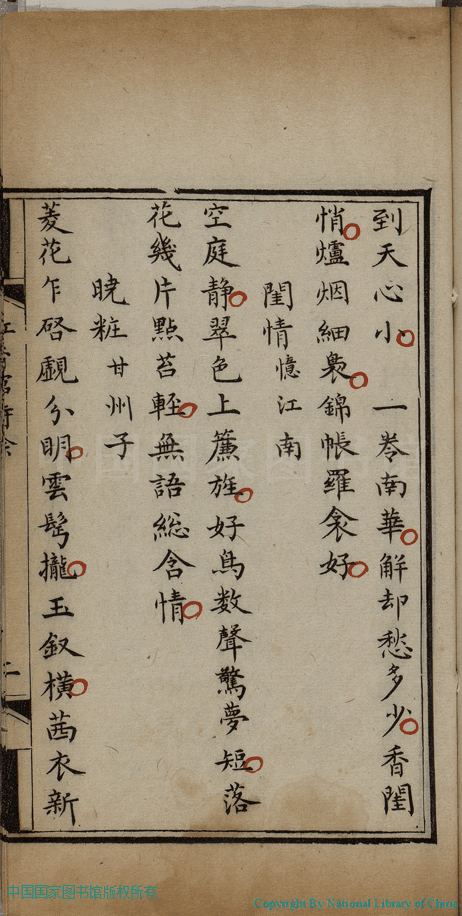 到天心小　一卷南華解却愁多少香閨
悄爐烟細裊錦帳羅衾好
閨情 憶江南
空庭静翠色上簾旌好鳥数聲驚夢短落
花幾片點苔輕無語総含情
曉粧 甘州子
菱花乍啓覷分明雲髩攏玉釵橫茜衣新
二
中国国家图书馆版权所有
Copyright By National Library of China